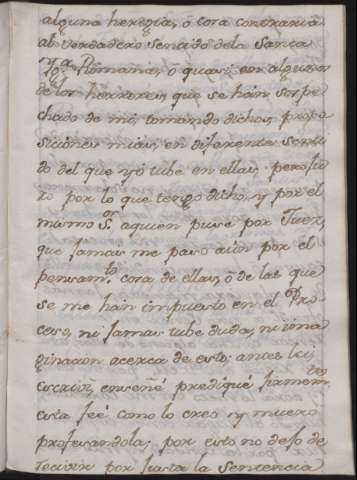 alguna heregia, ó cora contraria
al verdadero sentido dela Santa
Yg.a Romana, ó que si en algunos
de los herrores, que se hán sospe
chado de mi, tomando dichos propo
siciónes mias, en diferente senti
do del que yó tube en ellas. pero ju
ro por lo que tengo dicho, y por el
mismo S.or aquien puse por Juez,
que jamas me pasó aún por el
pensam.to cora de ellas, ó de las que
se me hán impuesto en el Pro
ceso, ni jamas tube duda, ni ima
ginacion acerca de esto: antes lei,
escriví, enseñé prediqué firmem.tes
esta feé como lo creo y muero
profesandola; por esto no dejo de
recivir por justa la sentencia